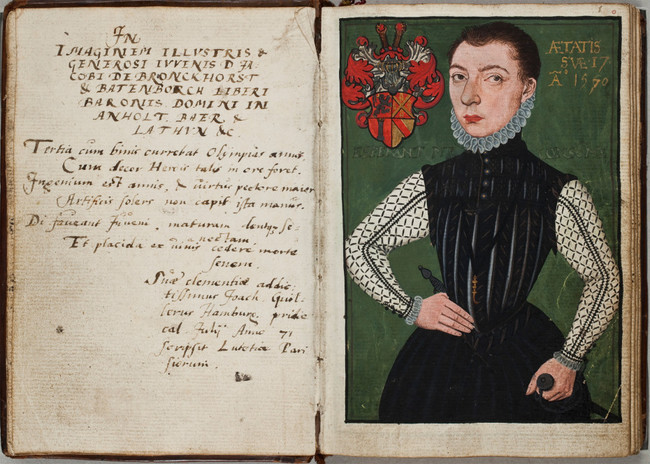 IN
IMAGINEM ILLUSTRIS &
GENEROSI IVVENIS D. JA,,
COBI DE BRONCKHORST
& BATENBORCH LIBERI
BARONIS DOMINI IN
ANHOLT, BAER, &
LATHVN &C.
Tertia cum binis currebat Olympias annis,
Cum decor Herois talis in ore foret.
Ingenium est annis, & virtus pectore maior
Artificis solers non capit ista manus.
Di faveant Iuveni, maturam
senectam
Et placida ex vivis cedere morte
senem.
Suæ clementiæ addic,,
tissimus Joach. Guil,,
lerus Hamburg. pridie
cal. Julij Anno 71
scripsit Lutetiæ Pari
siorum.
ÆTATIS
SVÆ 17
Aº 1570